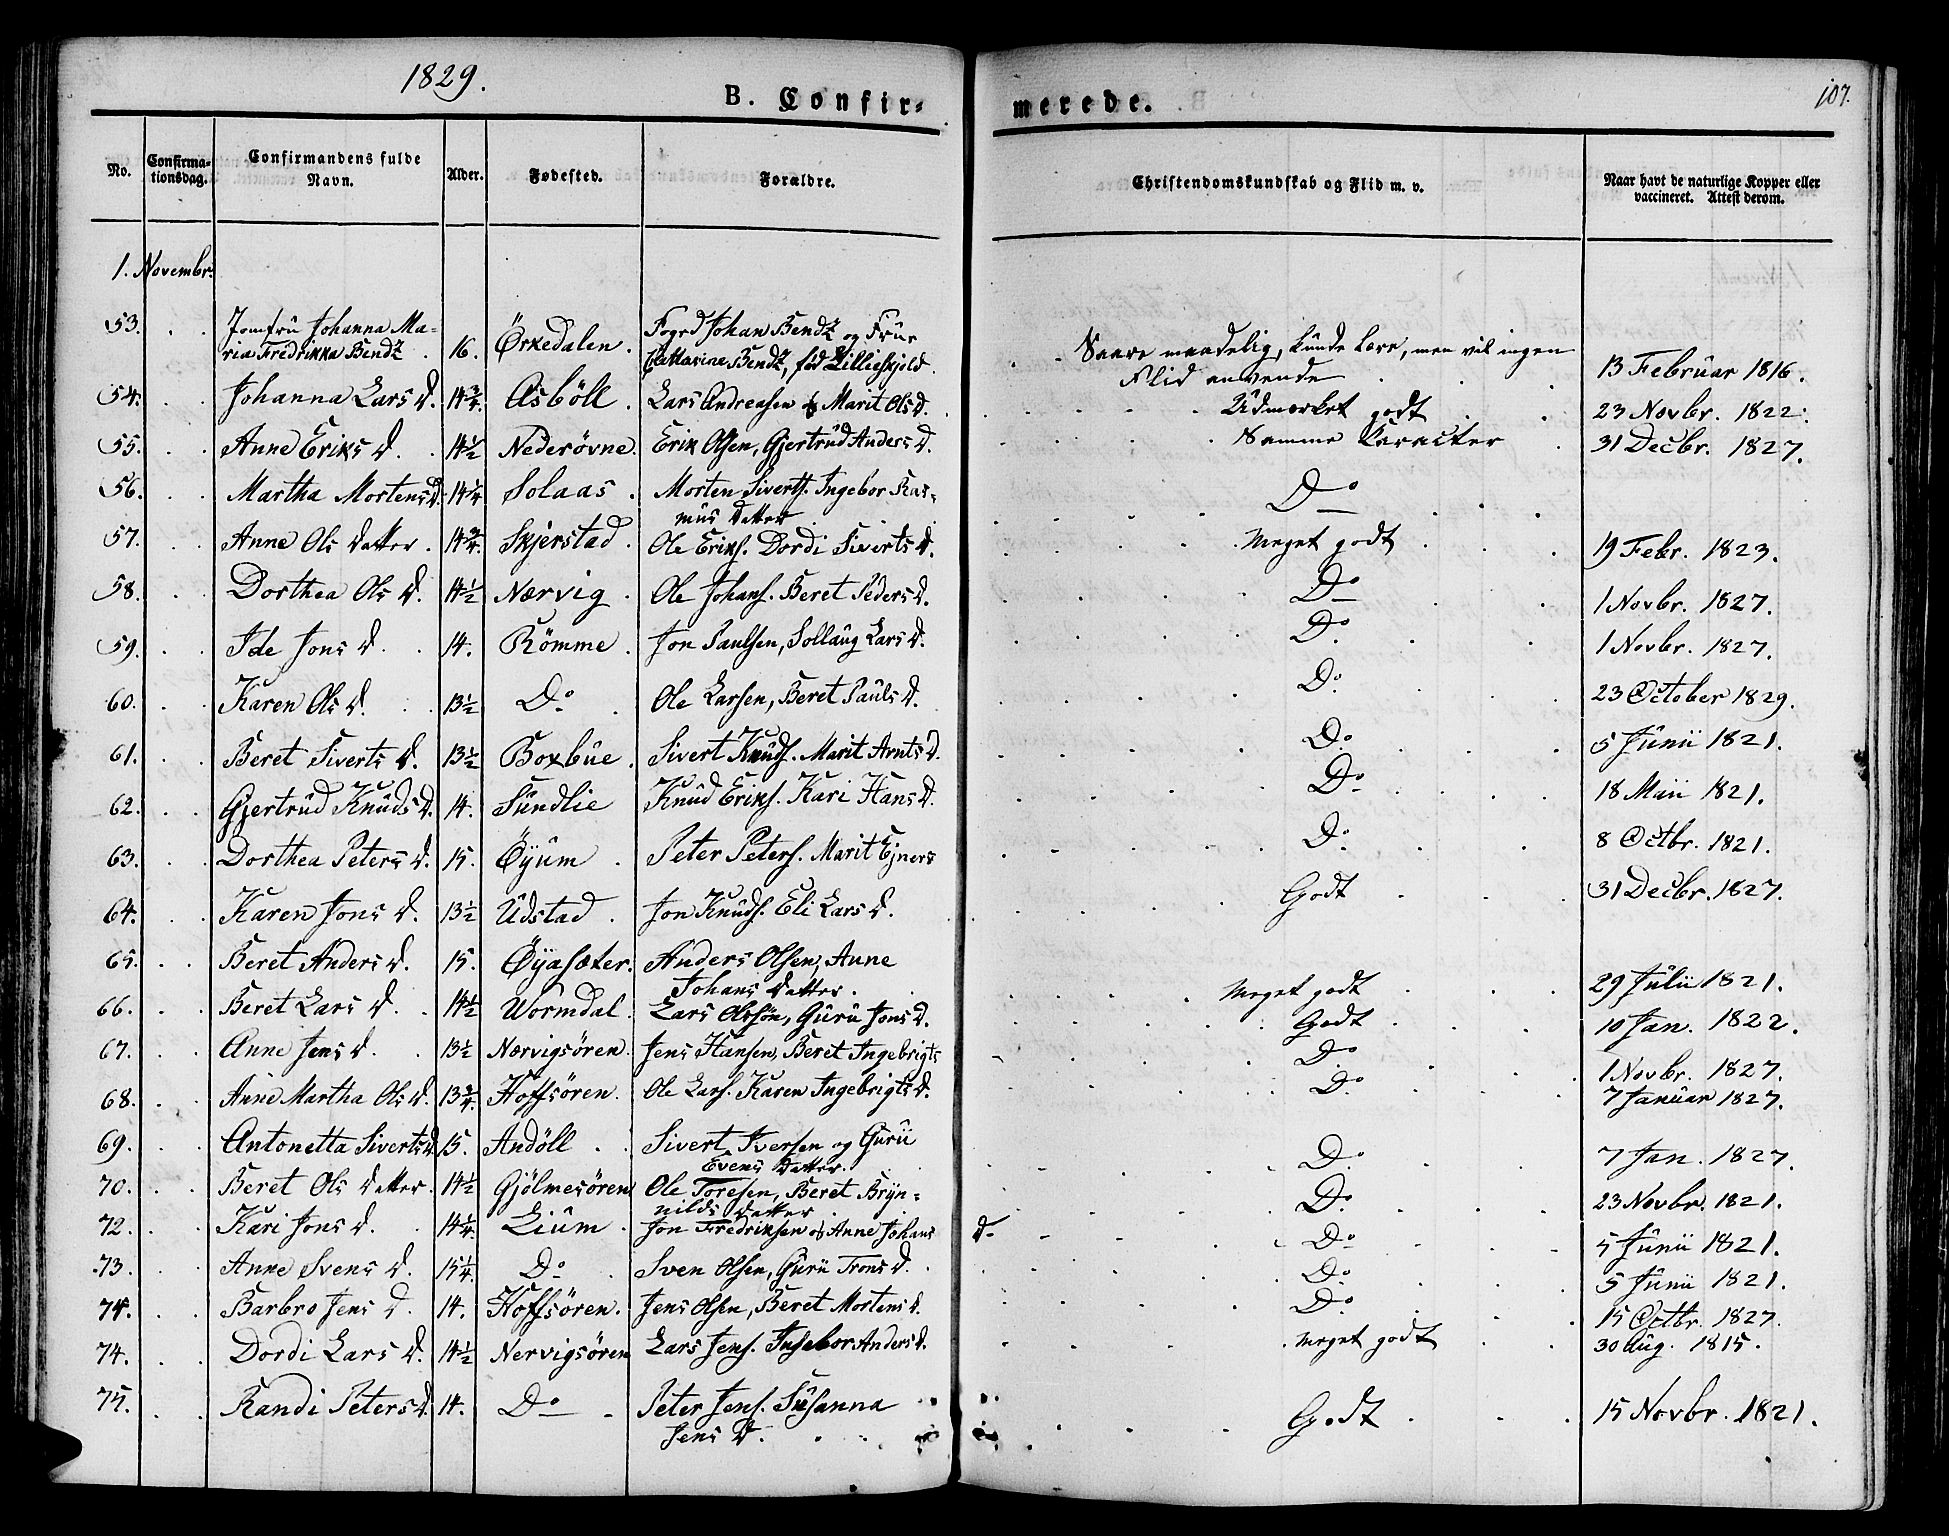 1829.
B. Confir=
merede.
107.
No.
Confirma-
tionsdag.
Confirmandens fulde
Navn.
Alder.
Fødested.
Forældre.
Christendomskundskab og Flid m. v.
Naar havt de naturlige Kopper eller
vaccineret. Attest derom.
1. Novembr.
53. Jomfrü Johanna Ma=
ria Fredrikka Bendz 16. Örkedalen. Fogd Johan Bendz og Früe
Cattarina Bendz, fød Lillieskjold. Saare maadelig, künde lære, men vil ingen
Flid anvende 13 Februar 1816.
54. Johanna Lars D. 14 3/4. Asböll. Lars Andreasen & Marit Ols D. Udmærket godt 23 Novbr. 1822.
55. Anne Eriks D. 14 1/2 Nederövne. Erik Olsen, Gjertrüd Anders D. Samme Caracter 31 Decbr. 1827.
56. Martha Mortens D. 14 1/4 Solaas. Morten Siverts. Ingebor Ras=
mus Datter Do
57. Anne Ols Datter. 14 3/4. Skjerstad. Ole Eriks. Dordi Siverts D. Meget godt 19 Febr. 1823.
58. Dorthea Ols D. 14 1/2 Nærvig. Ole Johans. Beret Peders D. Do 1 Novbr. 1827.
59. Ide Jons D. 14. Römme. Jon Paulsen, Sollaug Lars D. Do. 1 Novbr. 1827.
60. Karen Ols D. 13 1/2 Do. Ole Larsen, Beret Pauls D. Do. 23 October 1829.
61. Beret Siverts D. 13 1/2 Boxbüe. Sivert Knuds. Marit Arnts D. Do. 5 Junii 1821.
62. Gjertrüd Knüds D. 14. Sündlie Knüd Eriks. Kari Hans D. Do. 18 Maii 1821.
63. Dorthea Peters D. 15. Öyüm. Peter Peters. Marit Ejners Do. 8 Octbr. 1821.
64. Karen Jons D. 13 1/2 Udstad. Jon Knüds. Eli Lars D. Godt 31 Decbr. 1827.
65. Beret Anders D. 15. Öyasæter. Anders Olsen, Anne
Johans Datter. Meget godt 29 Julii 1821.
66. Beret Lars D. 14 1/2 Wormdal. Lars Olssön, Gürü Jons D. Godt 10 Jan. 1822.
67. Anne Jens D. 13 1/2 Nærvigsören. Jens Hansen, Beret Ingebrigts Do 1 Novbr. 1827.
68. Anne Martha Ols D. 13 3/4. Hoffsören. Ole Lars. Karen Ingebrigts D. Do. 7 Januar 1827.
69. Antonetta Siverts D. 15. Andöll. Sivert Iversen og Gürü
Evens Datter. Do. 7 Jan. 1827.
70. Beret Ols Datter. 14 1/2 Gjölmesören Ole Toresen, Beret Bryn=
nilds Datter Do. 23 Novbr. 1821.
72. Kari Jons D. 14 1/4. Liüm. Jon Fredriksen & Anne Johans D. Do. 5 Junii 1821.
73. Anne Svens D. 15 1/4. Do. Sven Olsen, Gürü Trons D. Do. 5 Junii 1821.
74. Barbro Jens D. 14. Hoffsören. Jens Olsen, Beret Mortens D. Do. 15 Octbr. 1827.
74. Dordi Lars D. 14 1/2 Nervigsören Lars Jens. Ingebor Anders D. Meget godt 30 Aug. 1815.
75. Randi Peters D. 14. Do Peter Jens. Susanna
Jens D. Godt 15 Novbr. 1821.